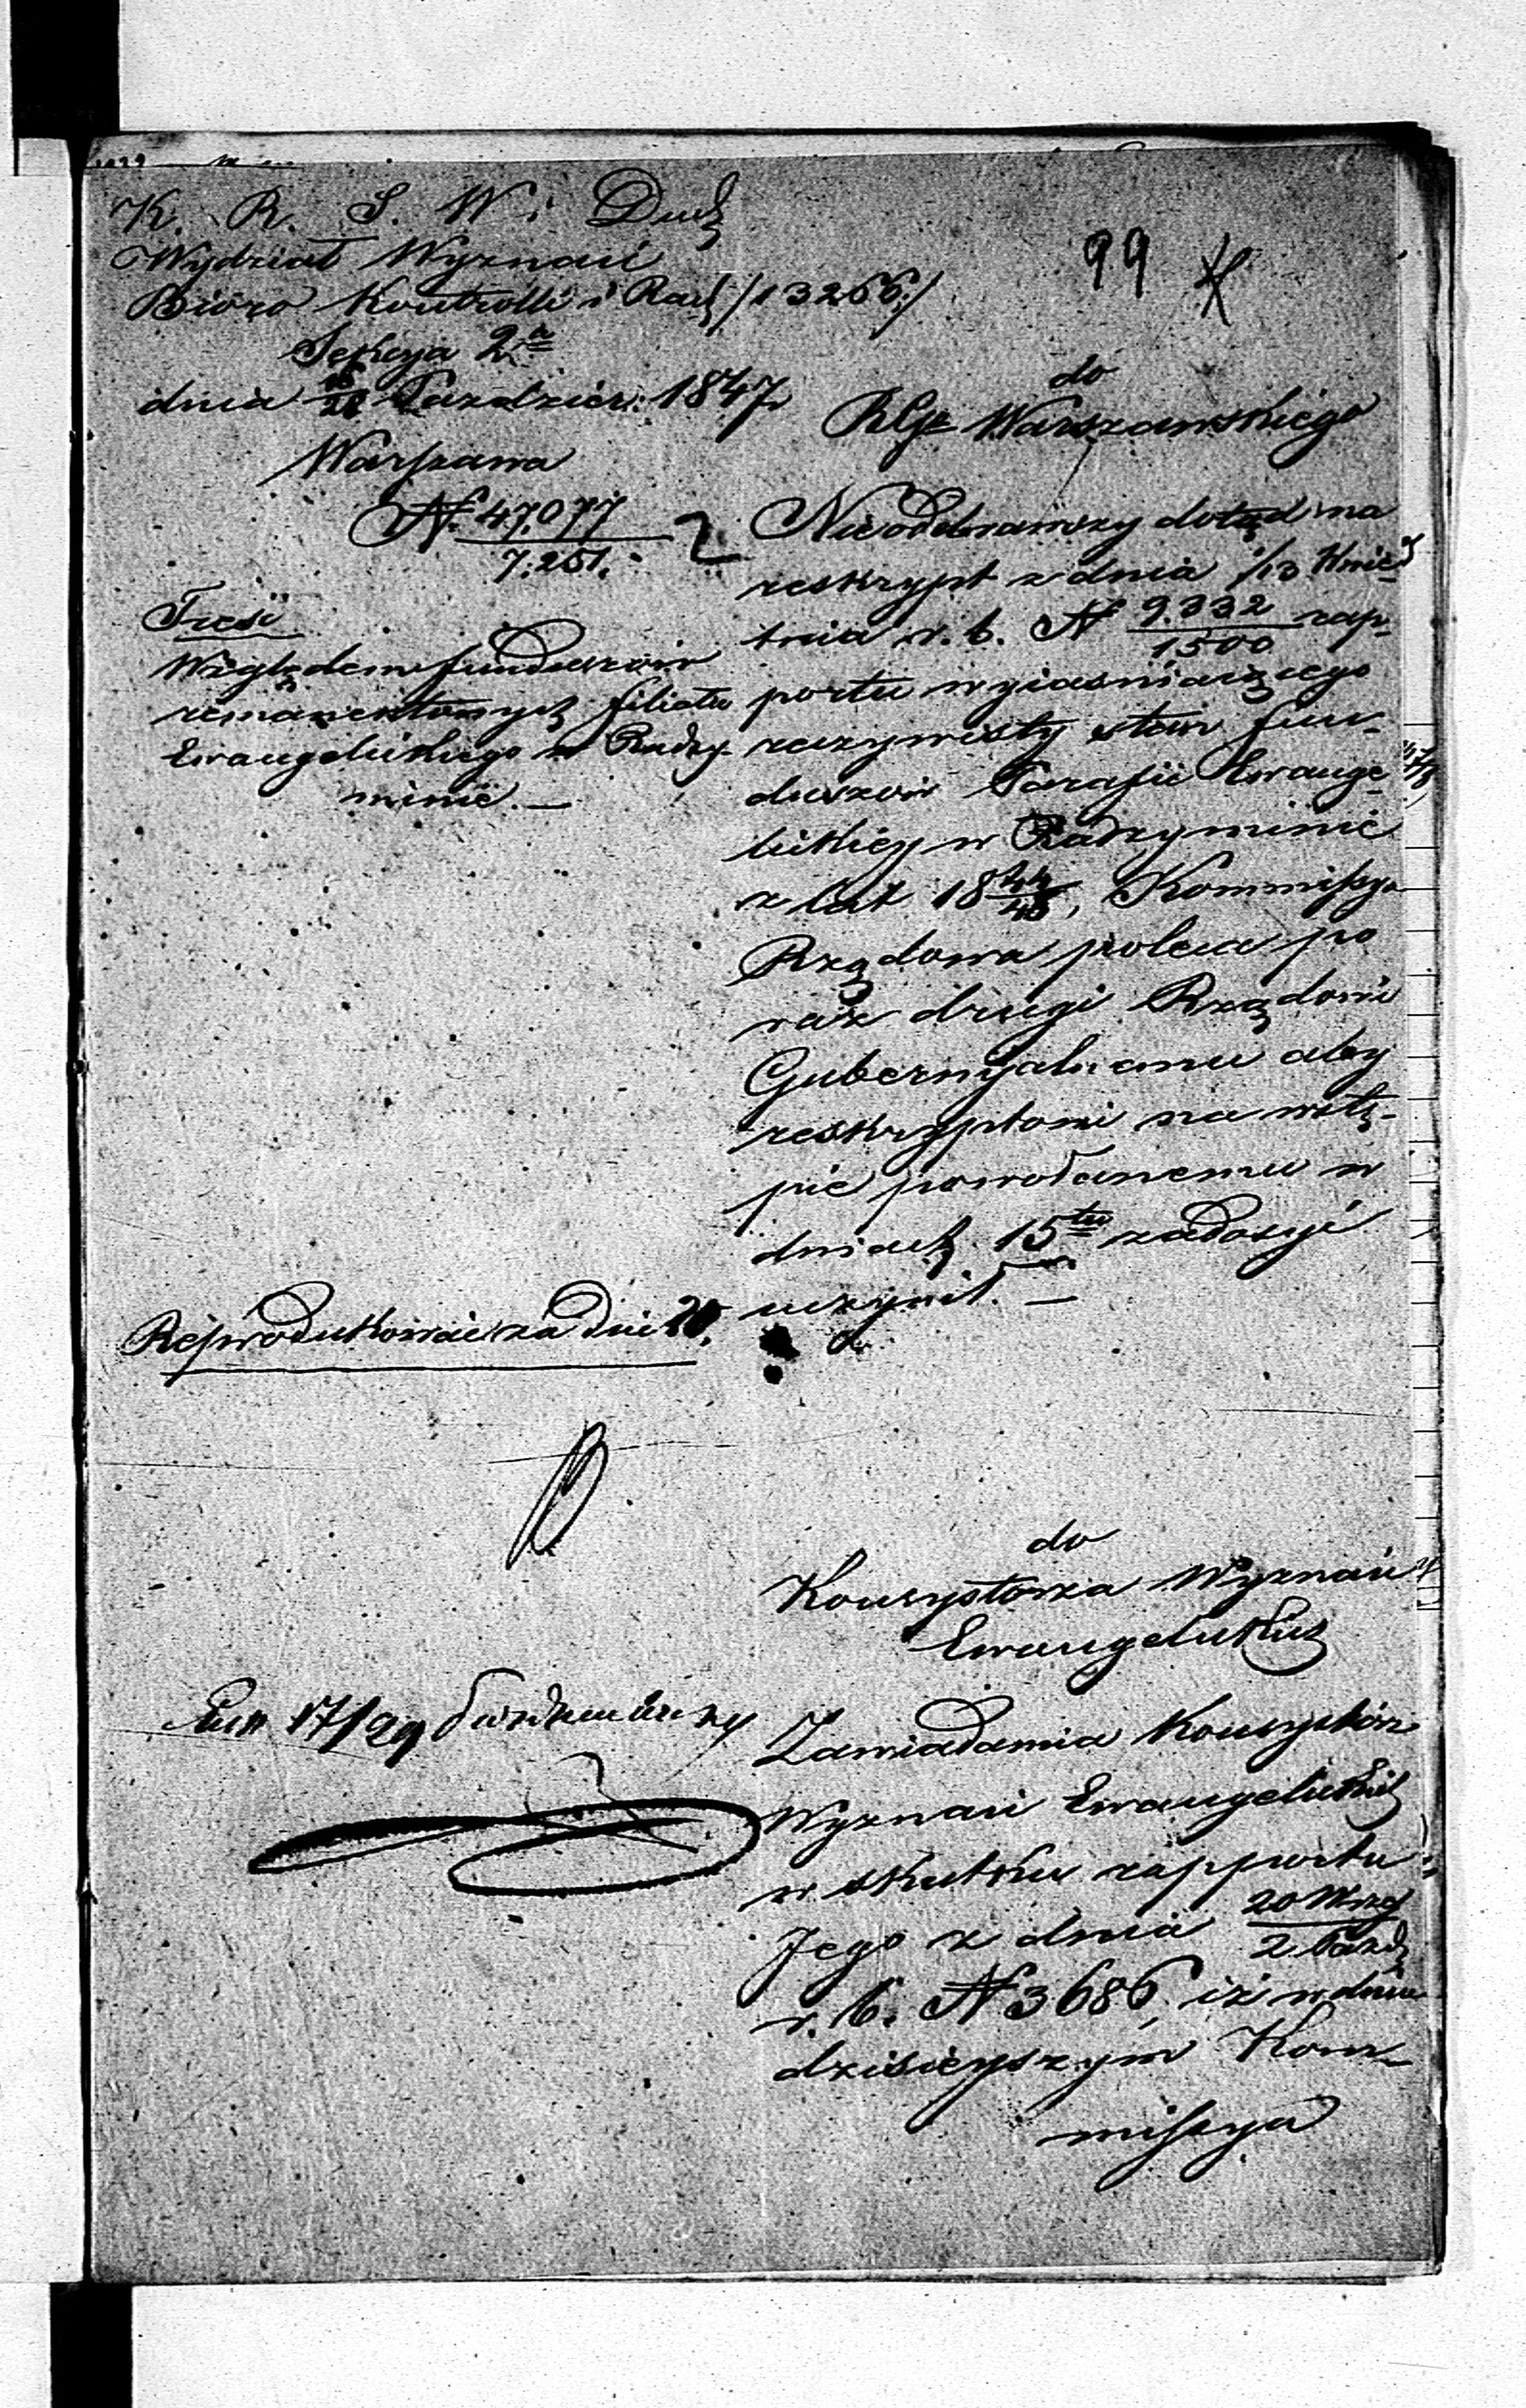 K. R. S. W. i Duch
Wydział Wyznań
Bióro Kontrolli i Rach /13266:/
Sekcya 2a
dnia 16/28 Paździer: 1847 r
Warszawa
N. 47.077
7.251.
Treść
Względem funduszów
remanentowych filiału
Ewangelickiego w Radzy-
minie. —
99
do
RGo Warszawskiego
Nieodebrawszy dotąd na
reskrypt z dnia 1/13 Kwie-
tnia r. b. N 9.332
1500 rap-
portu wyiaśniaiącego
rzeczywisty stan fun-
duszów Parafii Ewange-
lickiey w Radzyminie
z lat 1844/46, Kommissya
Rządowa poleca po
raz drugi Rządowi
Gubernyalnemu aby
reskryptowi na wstę-
pie powołanemu w
dniach 15tu zadosyć
uczynił. —
Reprodukować za dni 20.
do
Konsystorza Wyznań
Ewangelickich
17/29
Zawiadamia Konsystorz
Wyznań Ewangelickich
w skutku rapportu
Jego z dnia 20 Wrzes
2 Paźdz
r. b. N 3686, iż w dniu
dzisieyszym Kom-
missya